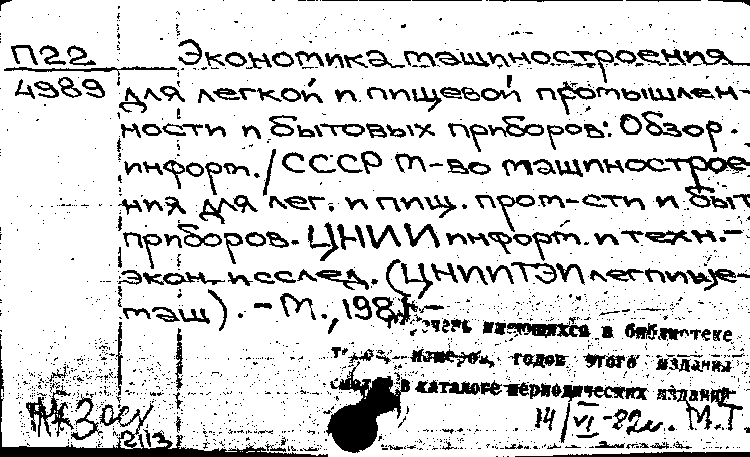 П22 Экономика машиностроения
4989 для легкой и пищевой промышлен-
ности и бытовых приборов: Обзор.
информ./СССР М-во машинострое-
ния для лег. и пищ. пром-сти и быт
приборов. ЦНИИ информ. и техн.-
экон. исслед. (ЦНИИТЭИлегпище-
маш). – М., 198
имеющихся в библиотеке
номеров, годов этого издания
смотри в каталоге периодических изданий
14/VI-82г. М.Т.